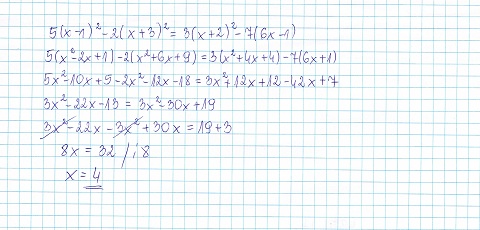 5(x-1)²-2(x+3)² = 3(x+2)²-7(6x-1)
5(x²-2x+1)-2(x²+6x+9) = 3(x²+4x+4)-7(6x+1)
5x²-10x+5-2x²-12x-18 = 3x²+12x+12-42x+7
3x²-22x-13 = 3x²-30x+19
3x²-22x-3x²+30x = 19+3
8x = 32 /:8
x = 4